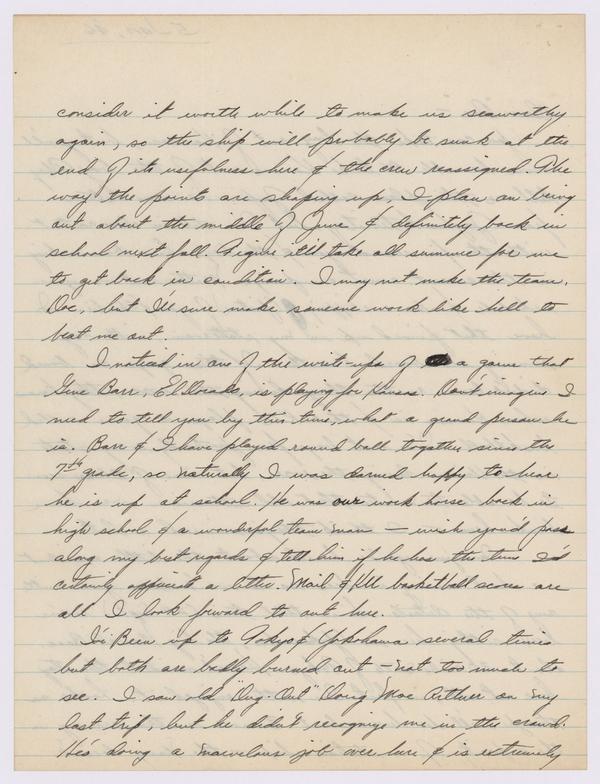 consider it worth while to make us seaworthy
again, so the ship will probably be sunk at the
end of its usefulness here & the crew reassigned. The
way the points are shaping up, I plan on being
out about the middle of June & definitely back in
school next fall. Figure it'll take all summer for me
to get back in condition. I may not make the team,
Doc, but I'll sure make someone work like hell to
beat me out.
I noticed in one of the write-ups of a game that
Gene Barr, El Dorado, is playing for Kansas. Don't imagine I
need to tell you by this time, what a grand person he
is. Barr & I have played round ball together since the
7th grade, so naturally I was darned happy to hear
he is up at school. He was our work horse back in
high school & a wonderful team man — wish you'd pass
along my best regards & tell him if he has the time I'd
certainly appreciate a letter. Mail & KU basketball scores are
all I look forward to out here.
I've Been up to Tokyo & Yokohama several times
but both are badly burned out — not too much to
see. I saw old "Dug-Out" Doug Mac Arthur on my
last trip, but he didn't recognize me in the crowd.
He's doing a marvelous job over here & is extremely